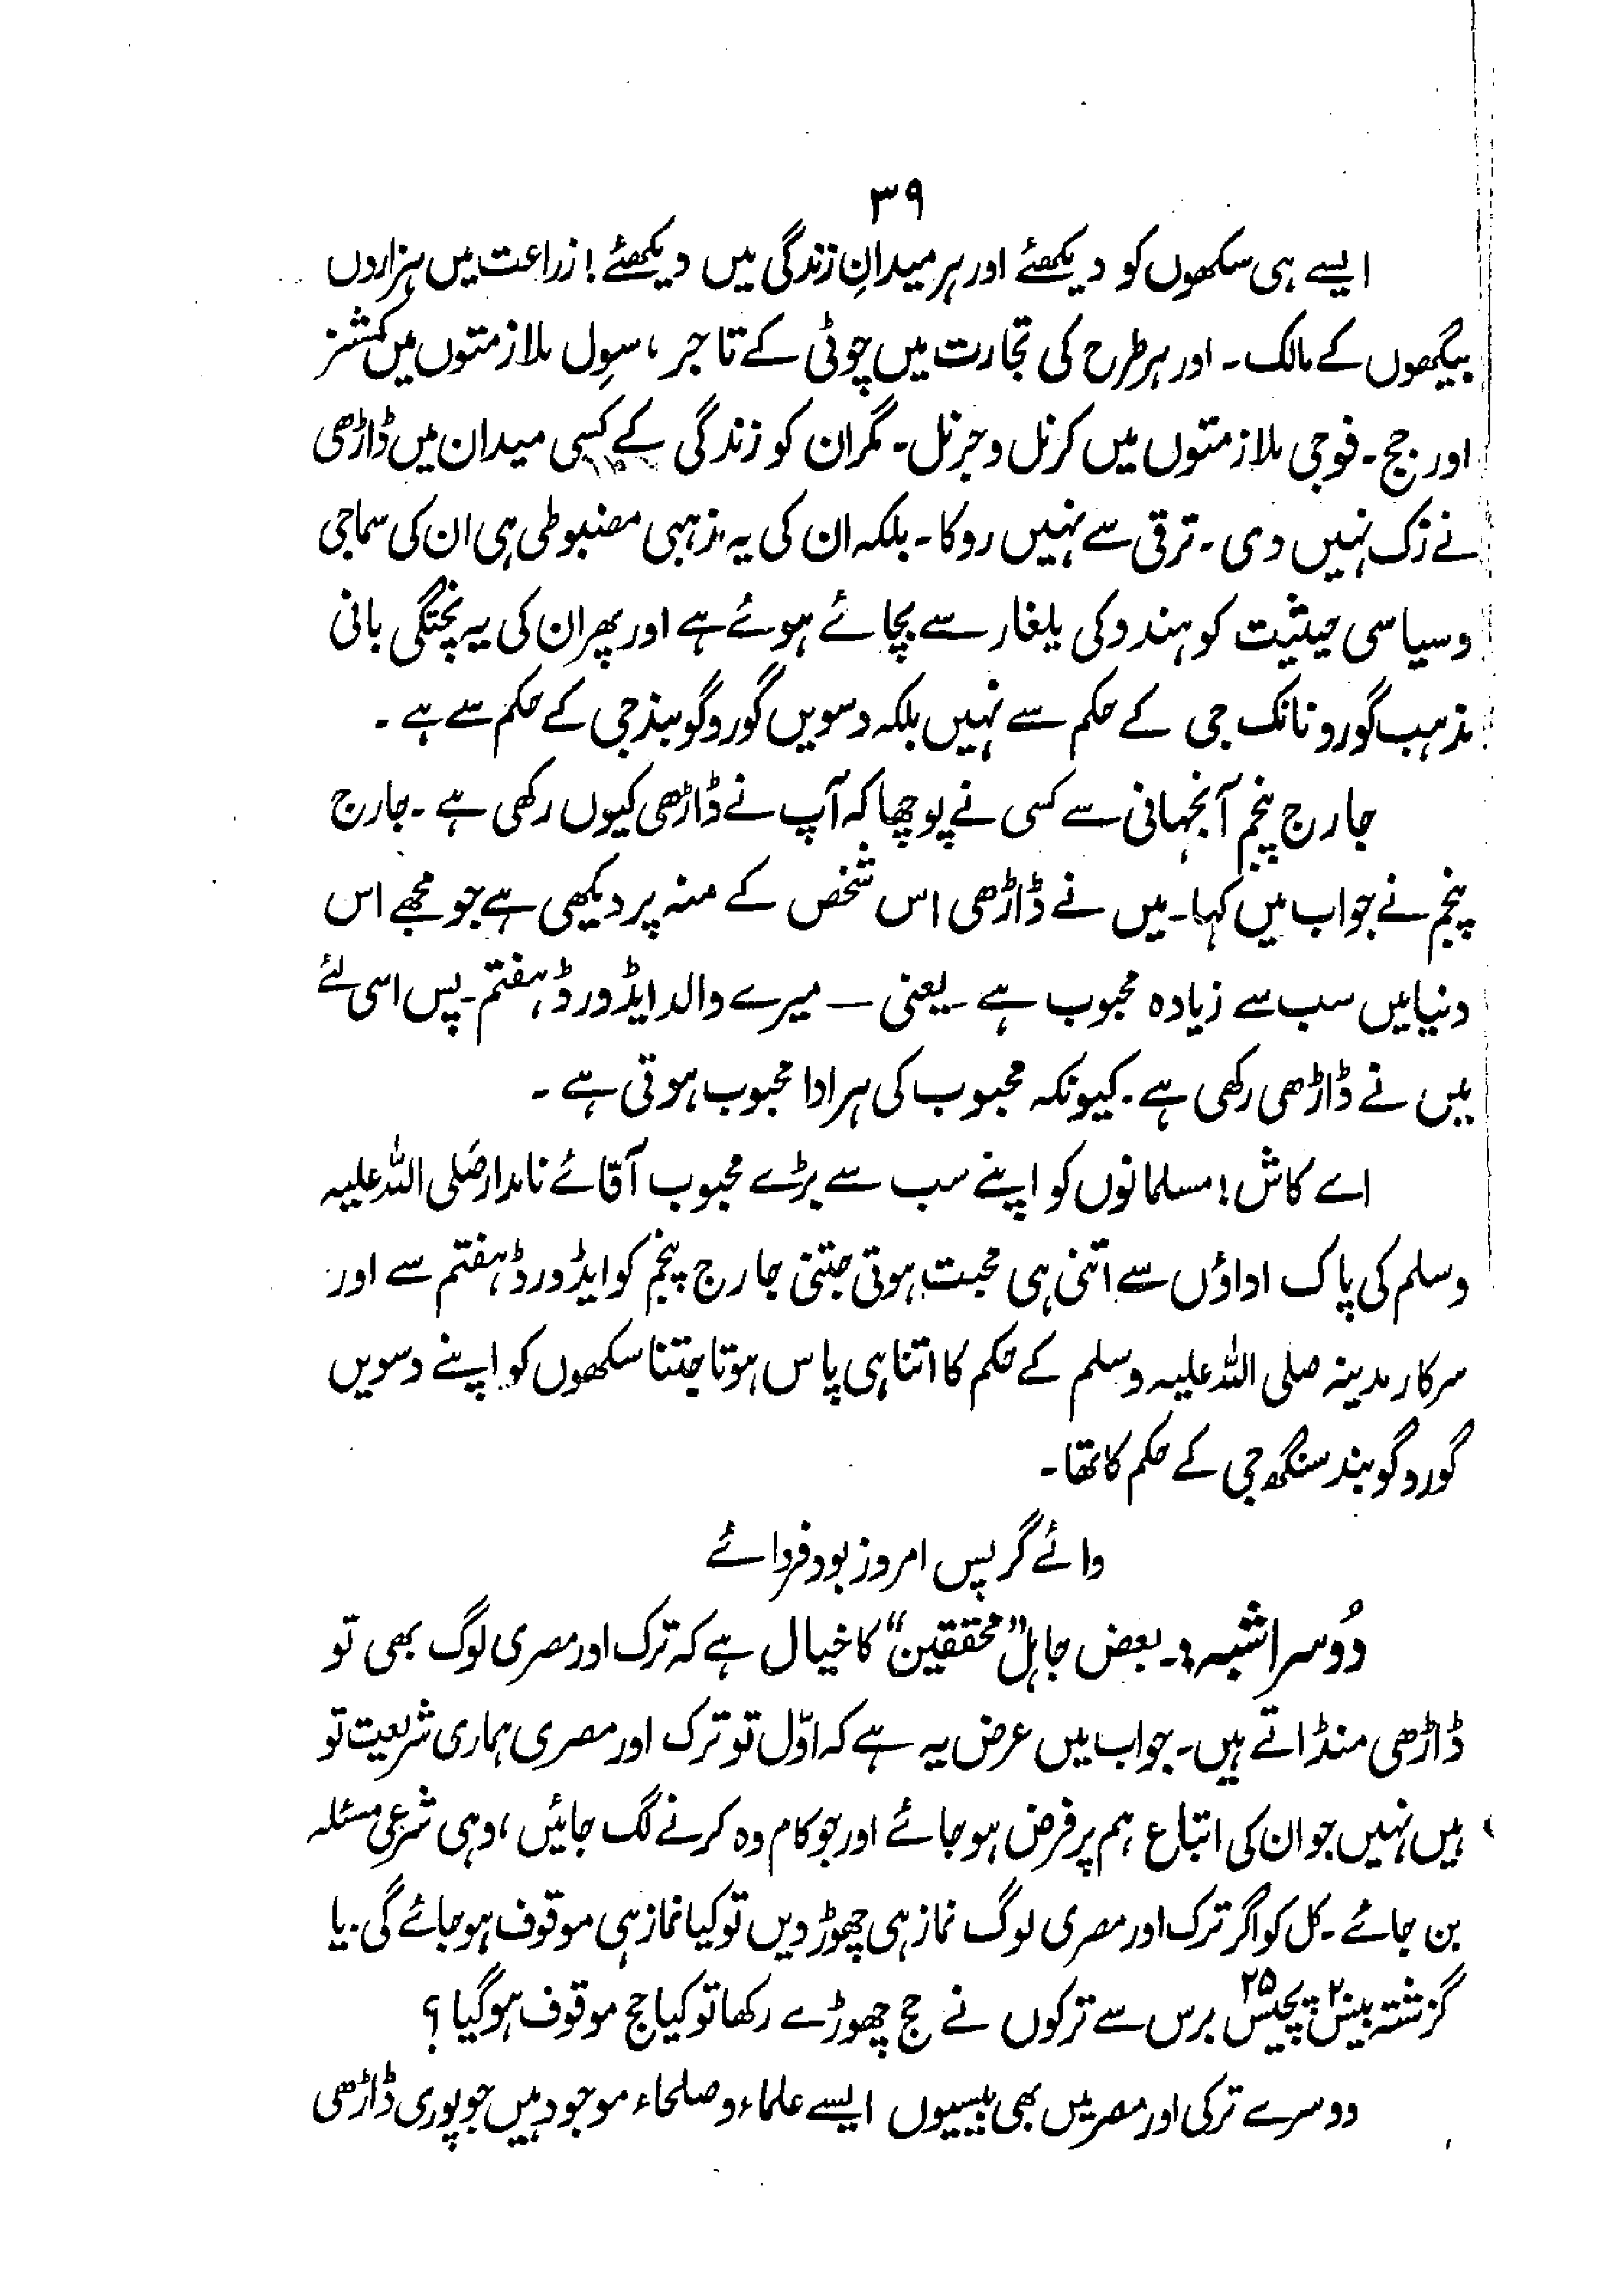 ۳۹
ایسے ہی سکھوں کو دیکھئے اور ہر میدانِ زندگی میں دیکھئے! زراعت میں ہزاروں
بیگھوں کے مالک۔ اور ہر طرح کی تجارت میں چوٹی کے تاجر، سوِل ملازمتوں میں کمشنر
اور جج۔ فوجی ملازمتوں میں کرنل و جرنل۔ مگر ان کو زندگی کے کسی میدان میں ڈاڑھی
نے زک نہیں دی۔ ترقی سے نہیں روکا۔ بلکہ ان کی یہ مذہبی مضبوطی ہی ان کی سماجی
و سیاسی حیثیت کو ہندو کی یلغار سے بچائے ہوئے ہے اور پھر ان کی یہ پختگی بانی
مذہب گورو نانک جی کے حکم سے نہیں بلکہ دسویں گورو گوبند جی کے حکم سے ہے۔
جارج پنجم آنجہانی سے کسی نے پوچھا کہ آپ نے ڈاڑھی کیوں رکھی ہے۔ جارج
پنجم نے جواب میں کہا۔ میں نے ڈاڑھی اس شخص کے منہ پر دیکھی ہے جو مجھے اس
دنیا میں سب سے زیادہ محبوب ہے۔ یعنی — میرے والد ایڈورڈ ہفتم۔ پس اسی لئے
میں نے ڈاڑھی رکھی ہے۔ کیونکہ محبوب کی ہر ادا محبوب ہوتی ہے۔
اے کاش! مسلمانوں کو اپنے سب سے بڑے محبوب آقائے نامدار صلی اللہ علیہ
وسلم کی پاک اداؤں سے اتنی ہی محبت ہوتی جتنی جارج پنجم کو ایڈورڈ ہفتم سے اور
سرکار مدینہ صلی اللہ علیہ وسلم کے حکم کا اتنا ہی پاس ہوتا جتنا سکھوں کو اپنے دسویں
گورو گوبند سنگھ جی کے حکم کا تھا۔
وائے گر پس امروز بود فردائے
دُوسرا شبہ:۔ بعض جاہل "محققین" کا خیال ہے کہ ترک اور مصری لوگ بھی تو
ڈاڑھی منڈاتے ہیں۔ جواب میں عرض یہ ہے کہ اوّل تو ترک اور مصری ہماری شریعت تو
ہیں نہیں جو ان کی اتباع ہم پر فرض ہو جائے اور جو کام وہ کرنے لگ جائیں، وہی شرعی مسئلہ
بن جائے۔ کل کو اگر ترک اور مصری لوگ نماز ہی چھوڑ دیں تو کیا نماز ہی موقوف ہو جائے گی۔ یا
گزشتہ بیس۲۰ پچیس۲۵ برس سے ترکوں نے حج چھوڑے رکھا تو کیا حج موقوف ہو گیا؟
دوسرے ترکی اور مصر میں بھی بیسیوں ایسے علماء و صلحاء موجود ہیں جو پوری ڈاڑھی